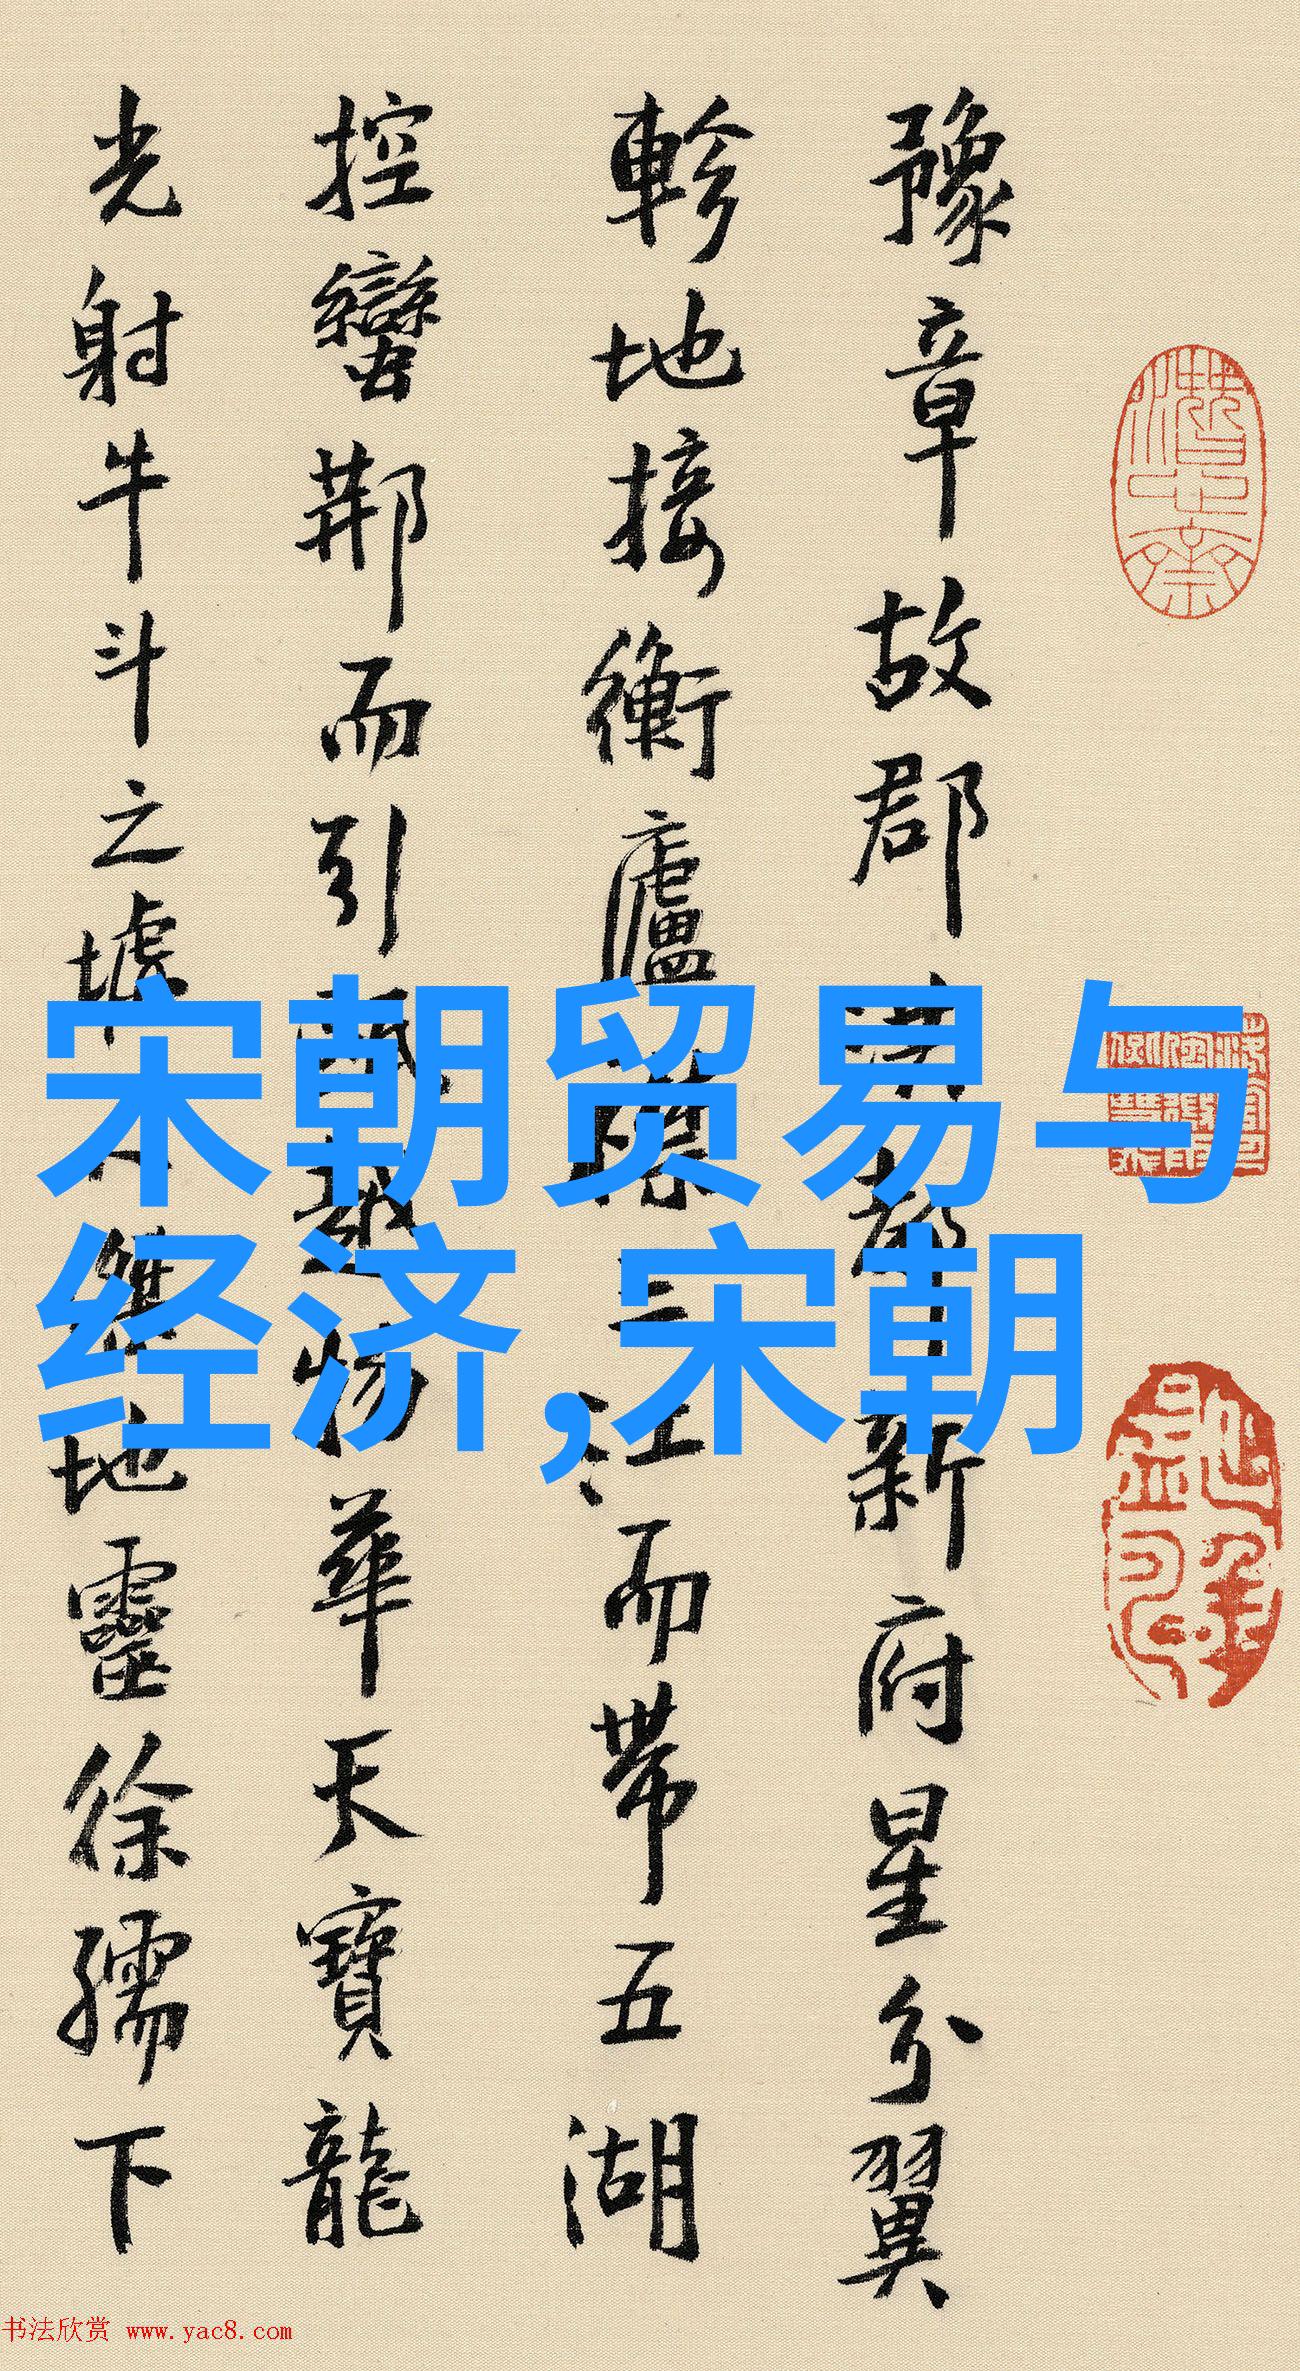 豫章故郡洪都新府星分翼
軫地接衡廬襟三江而帶五湖
控蠻荆而引甌越物華天寶龍
光射牛斗之墟人傑地靈徐孺下
宋朝贸易与
经济,宋朝
书法欣赏 www.yac8.com